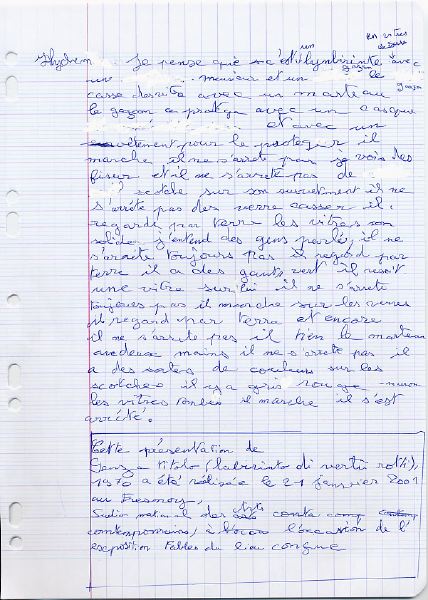 en vitres
un
Je pense que c'est lynbirinte avec
un meuseur et un le
gaçon
casse des vitre avec un marteau
le gaçon ce protege avec un casque
et avec un
vêtement pour le proteger il
marche il ne s'arrete pas je vois des
fiseur et il ne s'arrete pas de
scotche sur son survetment il ne
s'arrête pas des verre casser il a
regarde par terre les vitres son
solide j'entend des gens parlé, il ne
s'arrète toujours pas il regard par
terre il a des gants vert il resoit
une vitre sur lui il ne s'arrete
toujours pas il marche sur les verres
il regard par terre et encore
il ne s'arrète pas il tien le marteau
au deux mains il ne s'arrete pas il
a des sortes de couleurs sur les
scotches il y a gris rouge
les vitres tombes il marche il s'est
arrété.
Cette présentation de
Senza titolo (labirinto di vertri rotti),
1970 a été réalisée le 21 janvier 2001
au Fresnoy,
Studio national des arts
contemporains, à l'occasion de l'
exposition Fables du lieu